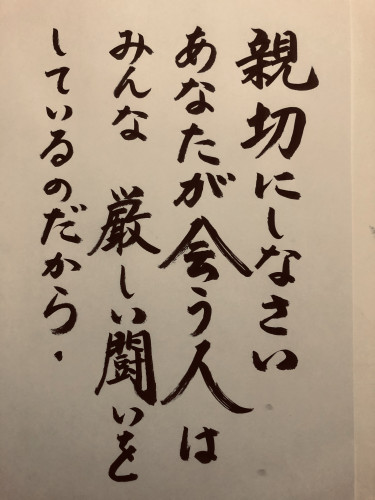 親切にしなさい
あなたが会う人は
みんな 厳しい闘いを
しているのだから.